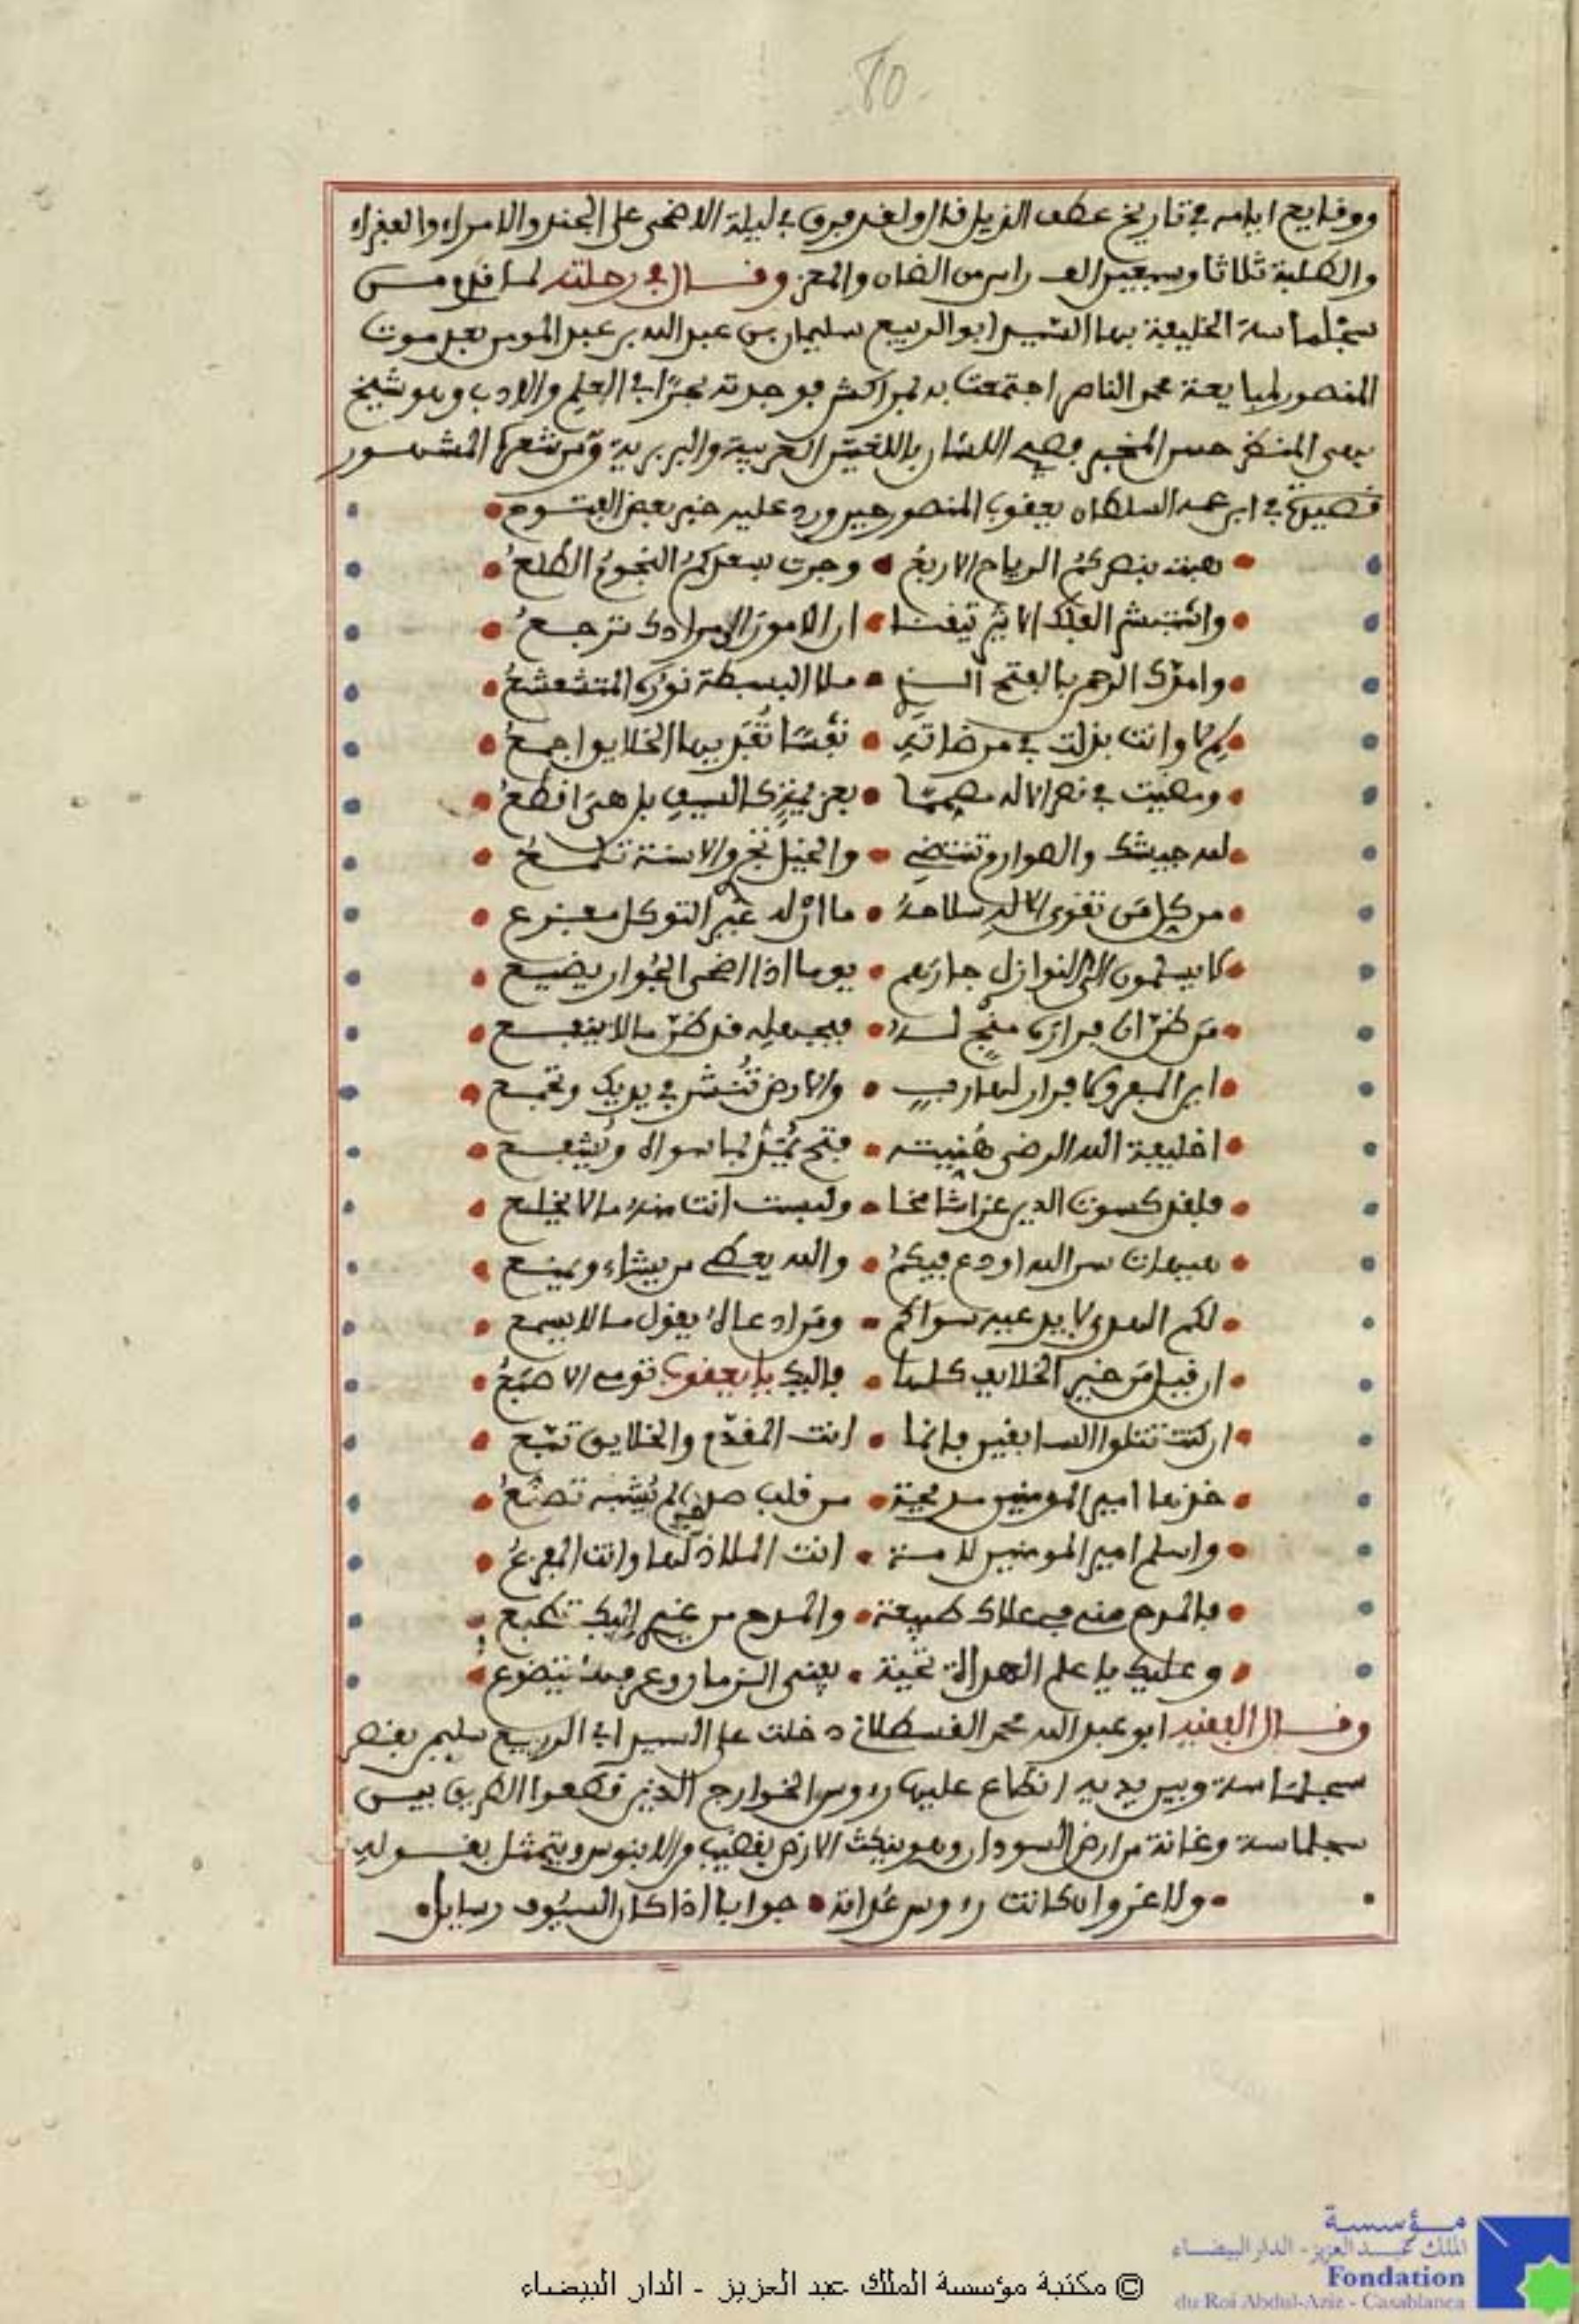 80
ووقايع ايامه في تاريخ عطف الذيل قال ولقد فرق في ليلة الاضحى على الجند والامراء والفقراء
والطلبة ثلاثا وسبعين الف راس من الضان والمعز وقال في رحلته لما قدم من
سجلماسة الخليفة بها السيد ابو الربيع سليمان بن عبد الله بن عبد المومن بعد موت
المنصور لمبايعة محمد الناصر اجتمعت به بمراكش فوجدته بحرًا في العلم والادب وهو شيخ
بهي المنظر حسن المخبر فصيح اللسان باللغتين العربية والبربرية ومن شعره المشهور
قصيدة في ابن عمه السلطان يعقوب المنصور حين ورد عليه خبر بعض الفتوح
هبت بنصركم الرياح الاربع • وجرت بسعدكم النجوم الطلع
واستبشر الفلك الاثير تيقنا • ان الامور الى مرادك ترجع
وامدك الرحمن بالفتح الذي • ملا البسيطة نوره المتشعشع
لم لا وانت بذلت في مرضاته • نفسًا تفديها الخلايق اجمع
ومضيت في نصر الاله مصممًا • بعزيمة كالسيف بل هي اقطع
لله جيشك والصوارم تنتضى • والخيل تجري والاسنة تلمع
من كل من تقوى الاله سلاحه • ما ان له غير التوكل مفزع
لا يسلمون الى النوازل جارهم • يوما اذا اضحى الجوار يضيع
من ظن ان فراره منج له • فبجهله قد ظن ما لا ينفع
اين المفر ولا فرار لهارب • والارض تنشر في يديك وتجمع
اخليفة الله الرضى هنيته • فتح يمد بما سواه ويشفع
فلقد كسوت الدين عزا شامخا • ولبست انت منه ما لا يخلع
هيهات سر الله اودع فيكم • والله يعطي من يشاء ويمنع
لكم الهدى لا يدعيه سواكم • ومن ادعاه يقول ما لا يسمع
ان قيل من خير الخلايف كلها • فاليك يا يعقوب تومى الاصبع
ان كنت تتلوا السابقين فانما • انت المقدم والخلايق تبع
خذها امير المومنين مديحة • من قلب صدق لم يشبه تصنع
واسلم امير المومنين لامة • انت الملاذ لها وانت المفزع
فالمدح مني في علاك طبيعة • والمدح من غيري اليك تطبع
وعليك يا علم الهداة تحية • يفنى الزمان وعرفها يتضوع
وقال الفقيه ابو عبد الله محمد القسطلاني دخلت على السيد ابي الربيع سليمن بقصر
سجلماسة وبين يديه انطاع عليها رءوس الخوارج الذين قطعوا الطريق بين
سجلماسة وغانة من ارض السودان وهو ينكث الارض بقضيب من الابنوس ويتمثل بقوله
ولا غرو ان كانت رءوس عداته • جوابا اذا كان السيوف رسايل
مؤسسة
الملك عبد العزيز - الدار البيضاء
Fondation
du Roi Abdul-Aziz - Casablanca
© مكتبة مؤسسة الملك عبد العزيز - الدار البيضاء